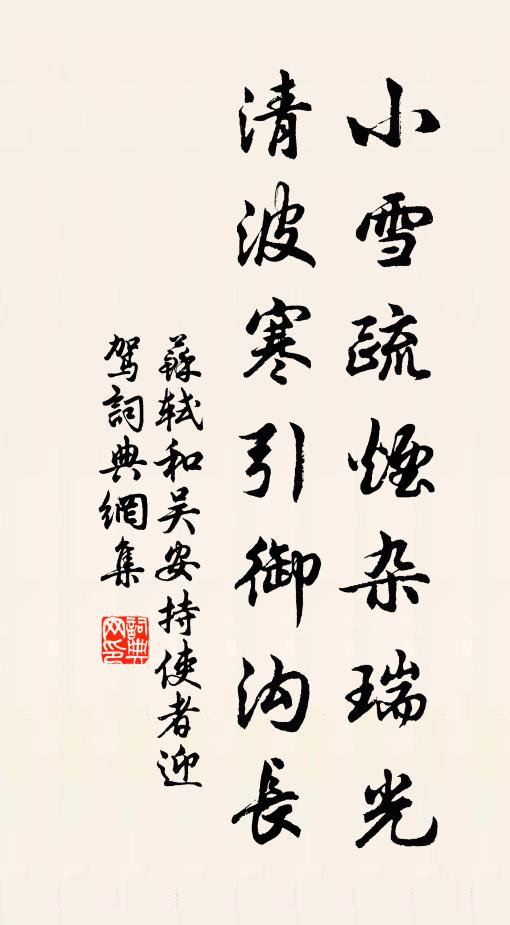 小雪疏煙杂瑞光
清波寒引御沟長
蘇軾和吴安持使者迎
駕詞典網集
詞典网印